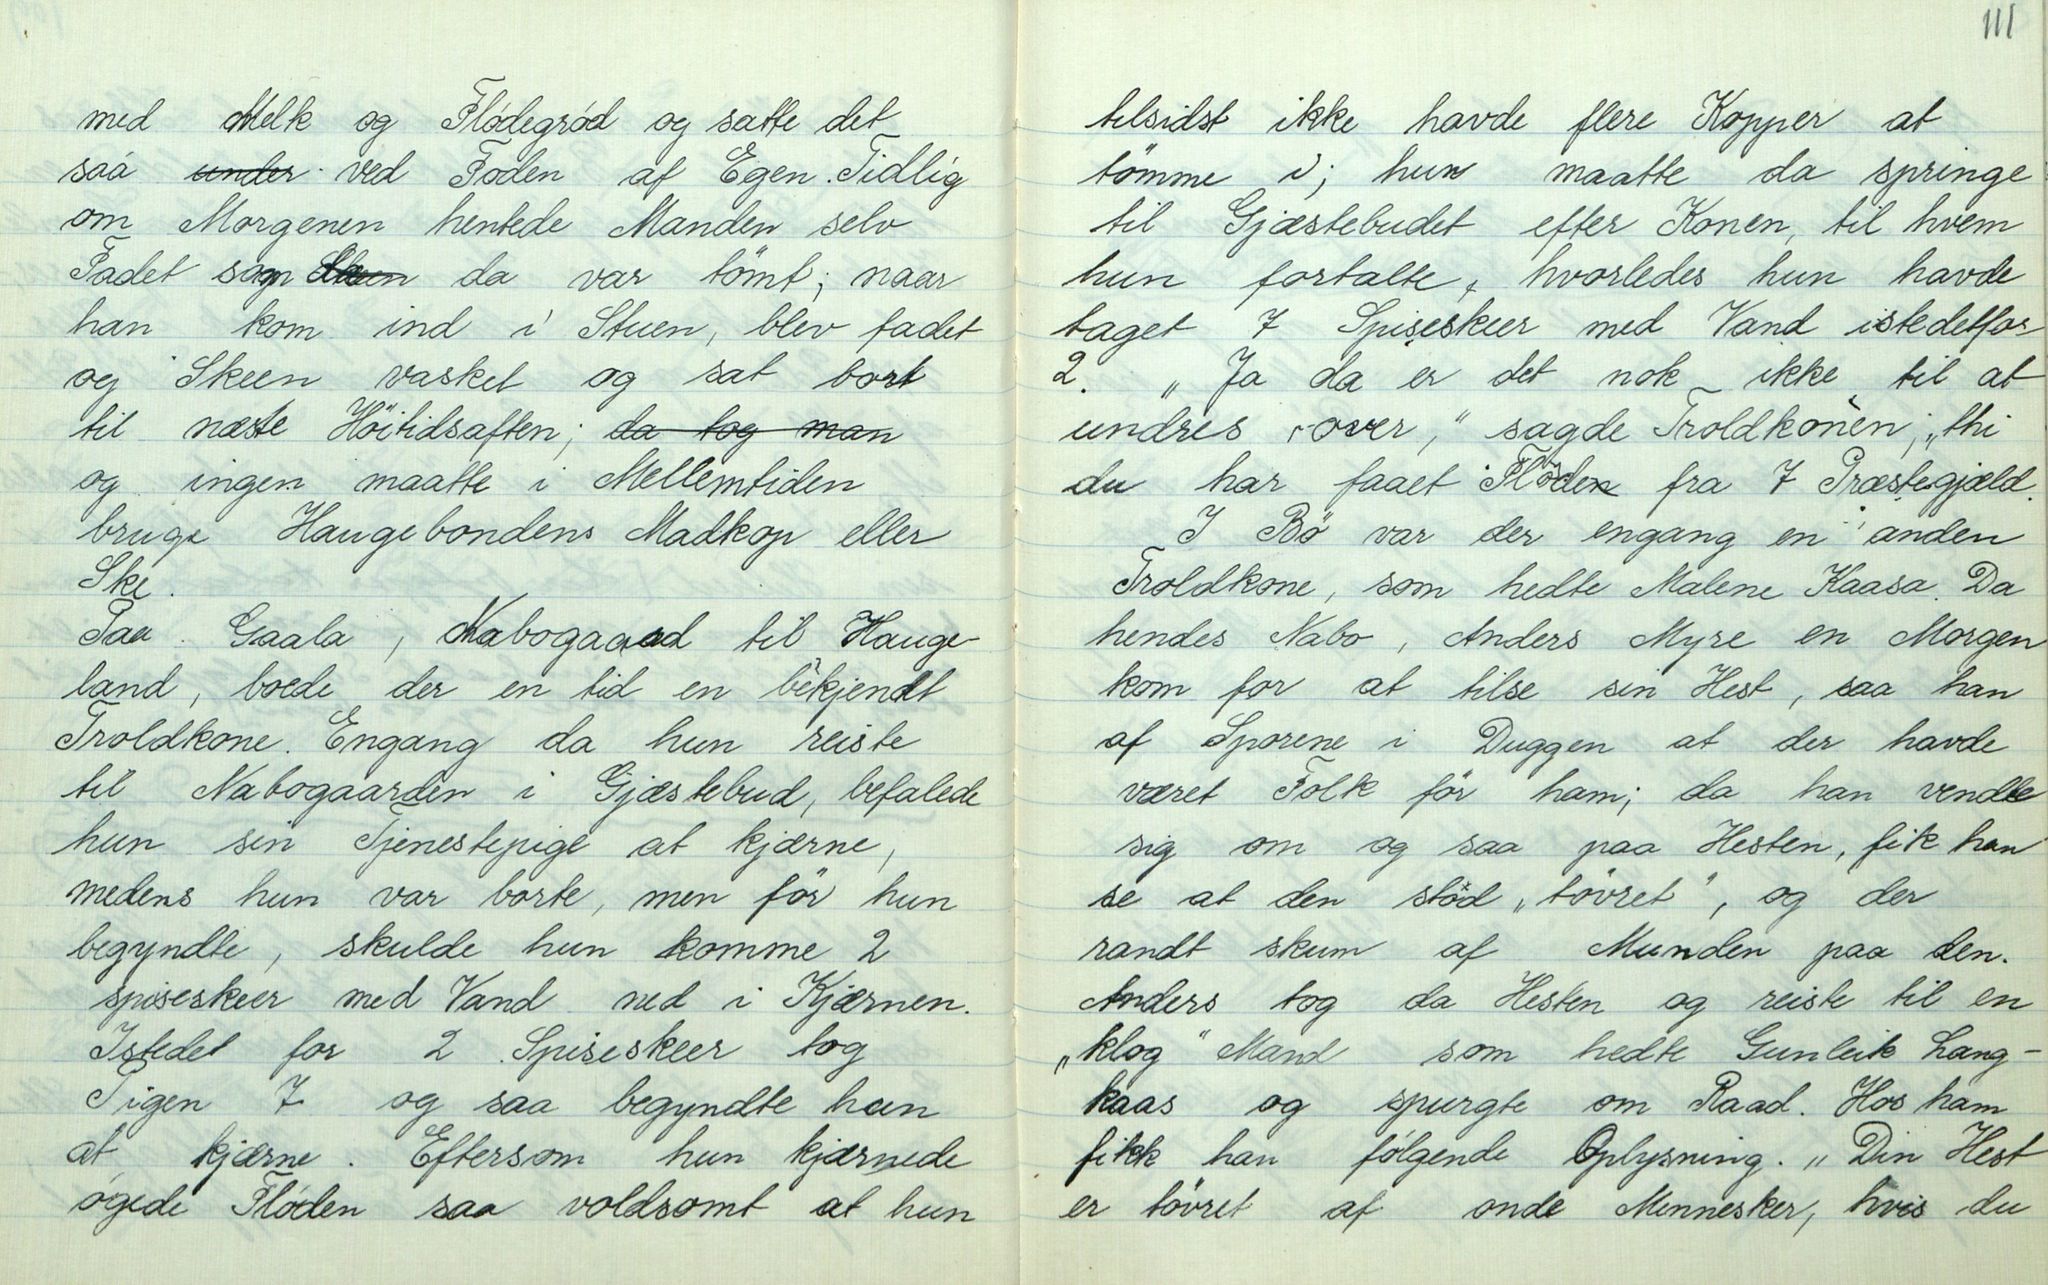 med Melk og Flødegrød og satte det
saa under ved Foden af Egen. Tidlig
om Morgenen hentede Manden selv
Fadet som da var tömt; naar
han kom ind i Stuen, blev fadet
og Skeen vasket og sat bort
til næste Höitidsaften; da tog man
og ingen maatte i Mellemtiden
bruge Haugebondens Madkop eller
Ske.
Paa Gaala, Nabogaard til Hauge-
land, boede der en tid en bekjendt
Troldkone. Engang da hun reiste
til Nabogaarden i Gjæstebud, befalede
hun sin Tjenestepige at kjærne,
medens hun var borte, men för hun
begyndte, skulde hun komme 2
spiseskeer med Vand ned i Kjærnen.
Istedet for 2 Spiseskeer tog
Pigen 7 og saa begyndte hun
at kjærne. Eftersom hun kjærnede
øgede Fløden saa voldsomt at hun
111
tilsidst ikke havde flere Kopper at
tömme i; hun maatte da springe
til Gjæstebudet efter Konen, til hvem
hun fortalte, hvorledes hun havde
taget 7 Spiseskeer med Vand istedetfor
2. „Ja da er det nok ikke til at
undres over," sagde Troldkonen; „thi
du har faaet Flöden fra 7 Præstegjæld.
I Bö var der engang en anden
Troldkone, som hedte Malene Kaasa. Da
hendes Nabo, Anders Myre en Morgen
kom for at tilse sin Hest, saa han
af Sporene i Duggen at der havde
været Folk för ham; da han vendte
sig om og saa paa Hesten, fik han
se at den stöd „tövret", og der
randt skum af Munden paa den.
Anders tog da Hesten og reiste til en
„klog" Mand som hedte Gunleik Lang-
kaas og spurgte om Raad. Hos ham
fikk han følgende Oplysning. „Din Hest
er tövret af onde Mennesker, hvis du